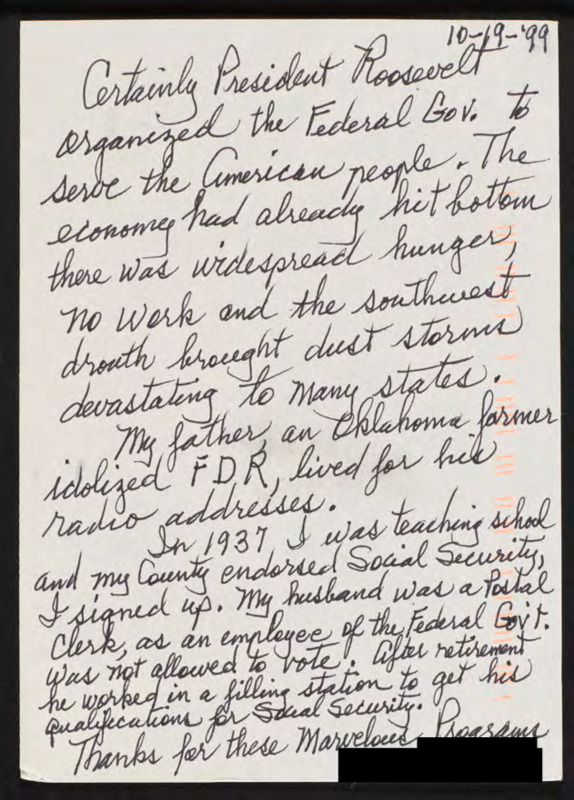 10-19-'99
Certainly President Roosevelt
organized the Federal Gov. to
serve the American people. The
economy had already hit bottom
there was widespread hunger,
no work and the southwest
drouth brought dust storms
devastating to many states.
My father, an Oklahoma farmer
idolized FDR, lived for his
radio addresses.
In 1937 I was teaching school
and my County endorsed Social Security,
I signed up. My husband was a Postal
Clerk, as an employee of the Federal Gov't.
was not allowed to vote. After retirement
he worked in a filling station to get his
qualifications for Social Security.
Thanks for these Marvelous Programs